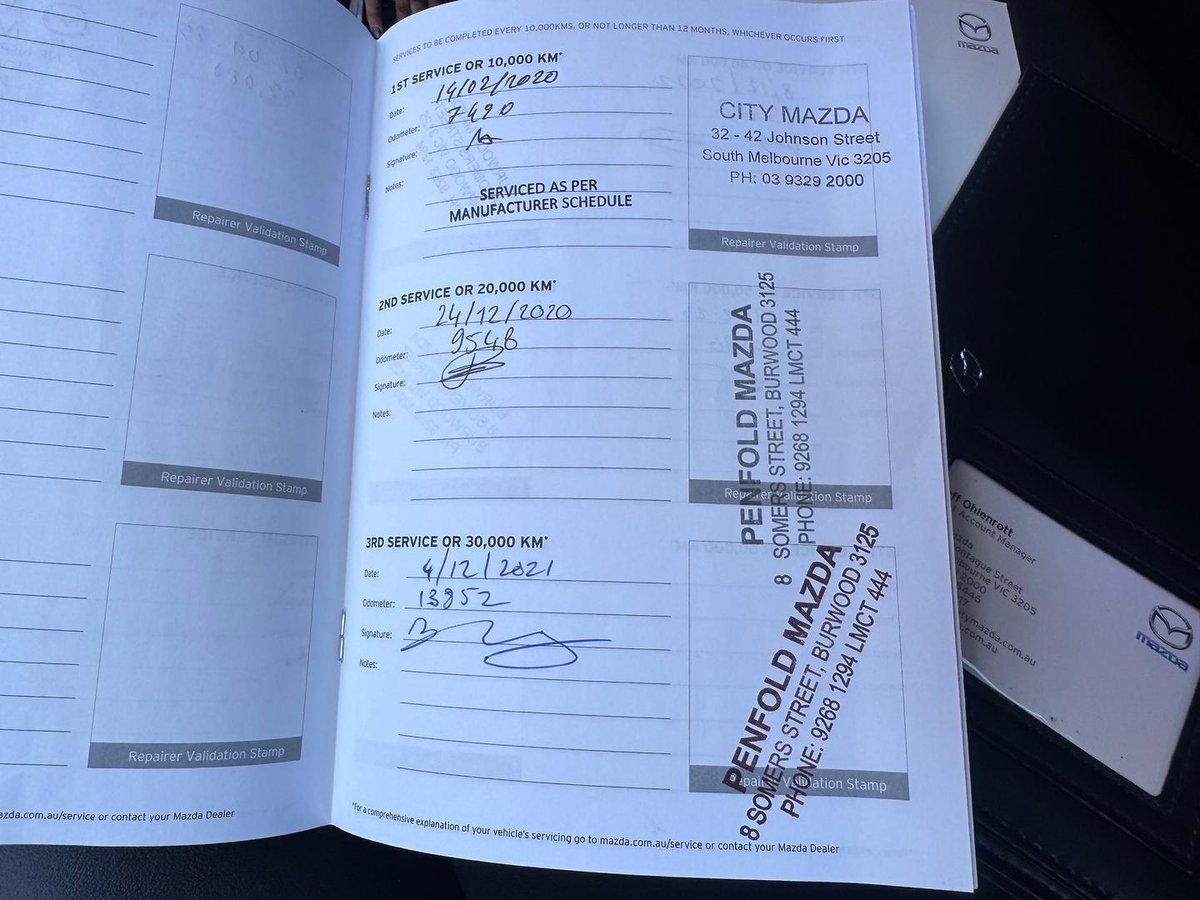 SERVICES TO BE COMPLETED EVERY 10,000KMS, OR NOT LONGER THAN 12 MONTHS, WHICHEVER OCCURS FIRST
1ST SERVICE OR 10,000 KM*
Date: 19/02/2020
Odometer: 7420
Signature:
Notes:
SERVICED AS PER
MANUFACTURER SCHEDULE
CITY MAZDA
32 - 42 Johnson Street
South Melbourne Vic 3205
PH: 03 9329 2000
Repairer Validation Stamp
2ND SERVICE OR 20,000 KM*
Date: 24/12/2020
Odometer: 9548
Signature:
Notes:
PENFOLD MAZDA
8 SOMERS STREET, BURWOOD 3125
PHONE: 9268 1294 LMCT 444
Repairer Validation Stamp
3RD SERVICE OR 30,000 KM*
Date: 4/12/2021
Odometer: 13952
Signature:
Notes:
PENFOLD MAZDA
8 SOMERS STREET, BURWOOD 3125
PHONE: 9268 1294 LMCT 444
Repairer Validation Stamp
*For a comprehensive explanation of your vehicle's servicing go to mazda.com.au/service or contact your Mazda Dealer
Repairer Validation Stamp
Repairer Validation Stamp
Repairer Validation Stamp
azda.com.au/service or contact your Mazda Dealer
mazda
ff Ohlenrott
Account Manager
azda
ontague Street
lbourne VIC 3205
2000
446
tymazda.com.au
.com.au
mazda